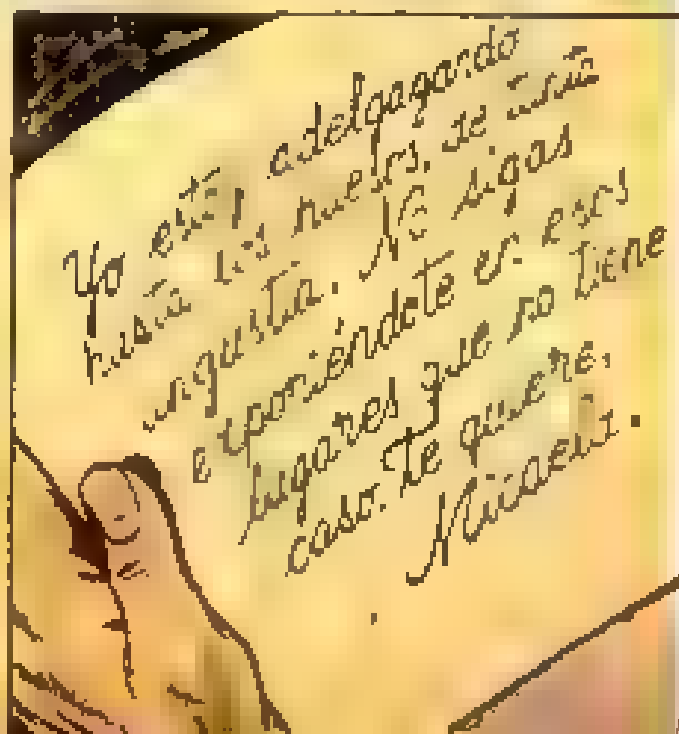 Yo estoy adelgazando
hasta los huesos, de tanta
angustia. No sigas
exponiéndote en esos
lugares que no tiene
caso. Te quiere,
Micaela.